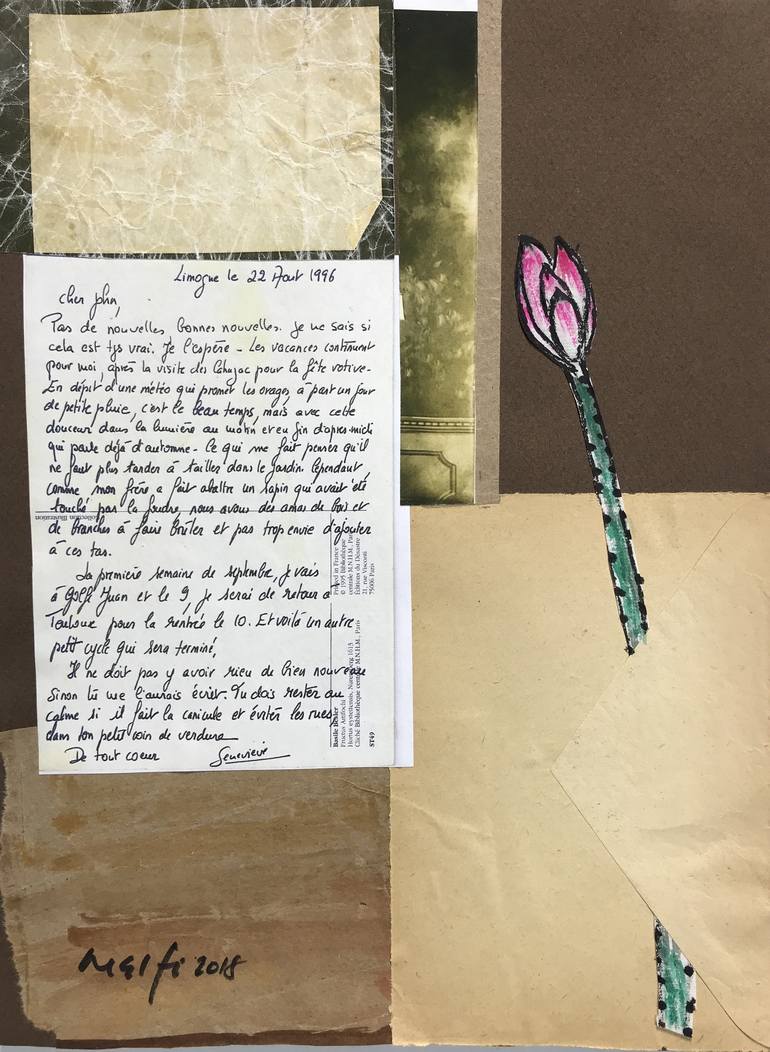 Limogne le 22 Aout 1996
cher John,
Pas de nouvelles bonnes nouvelles. Je ne sais si
cela est tjs vrai. Je l'espère - Les vacances continuent
pour moi, après la visite des pour la fête votive-
En dépit d'une météo qui promet les orages, à part un jour
de petite pluie, c'est le beau temps, mais avec cette
douceur dans la lumière au matin et en fin d'après-midi
qui parle déjà d'automne - Ce qui me fait penser qu'il
ne faut plus tarder à tailler dans le jardin. Cependant,
comme mon frère a fait abattre un sapin qui avait été
touché par la foudre, nous avons des amas de bois et
de branches à faire brûler et pas trop envie d'ajouter
à ces tas.
La première semaine de septembre, je vais
à Golfe Juan et le 9, je serai de retour à
Toulouse pour la rentrée le 10. Et voilà un autre
petit cycle qui sera terminé,
Il ne doit pas y avoir rien de bien nouveau
Sinon tu me l'aurais écrit. Tu dois rester au
calme si il fait la canicule et éviter les rues
dans ton petit coin de verdure
De tout coeur Geneviève
Collection Illustration
Printed in France
© 1995 Bibliothèque
centrale M.N.H.N. Paris
Éditions du Désastre
21, rue Visconti
75006 Paris
Basile Besler
Fructus Artifochi
Hortus eystettensis, Nuremberg 1613
Cliché Bibliothèque centrale M.N.H.N. Paris
ST69
malfi 2018